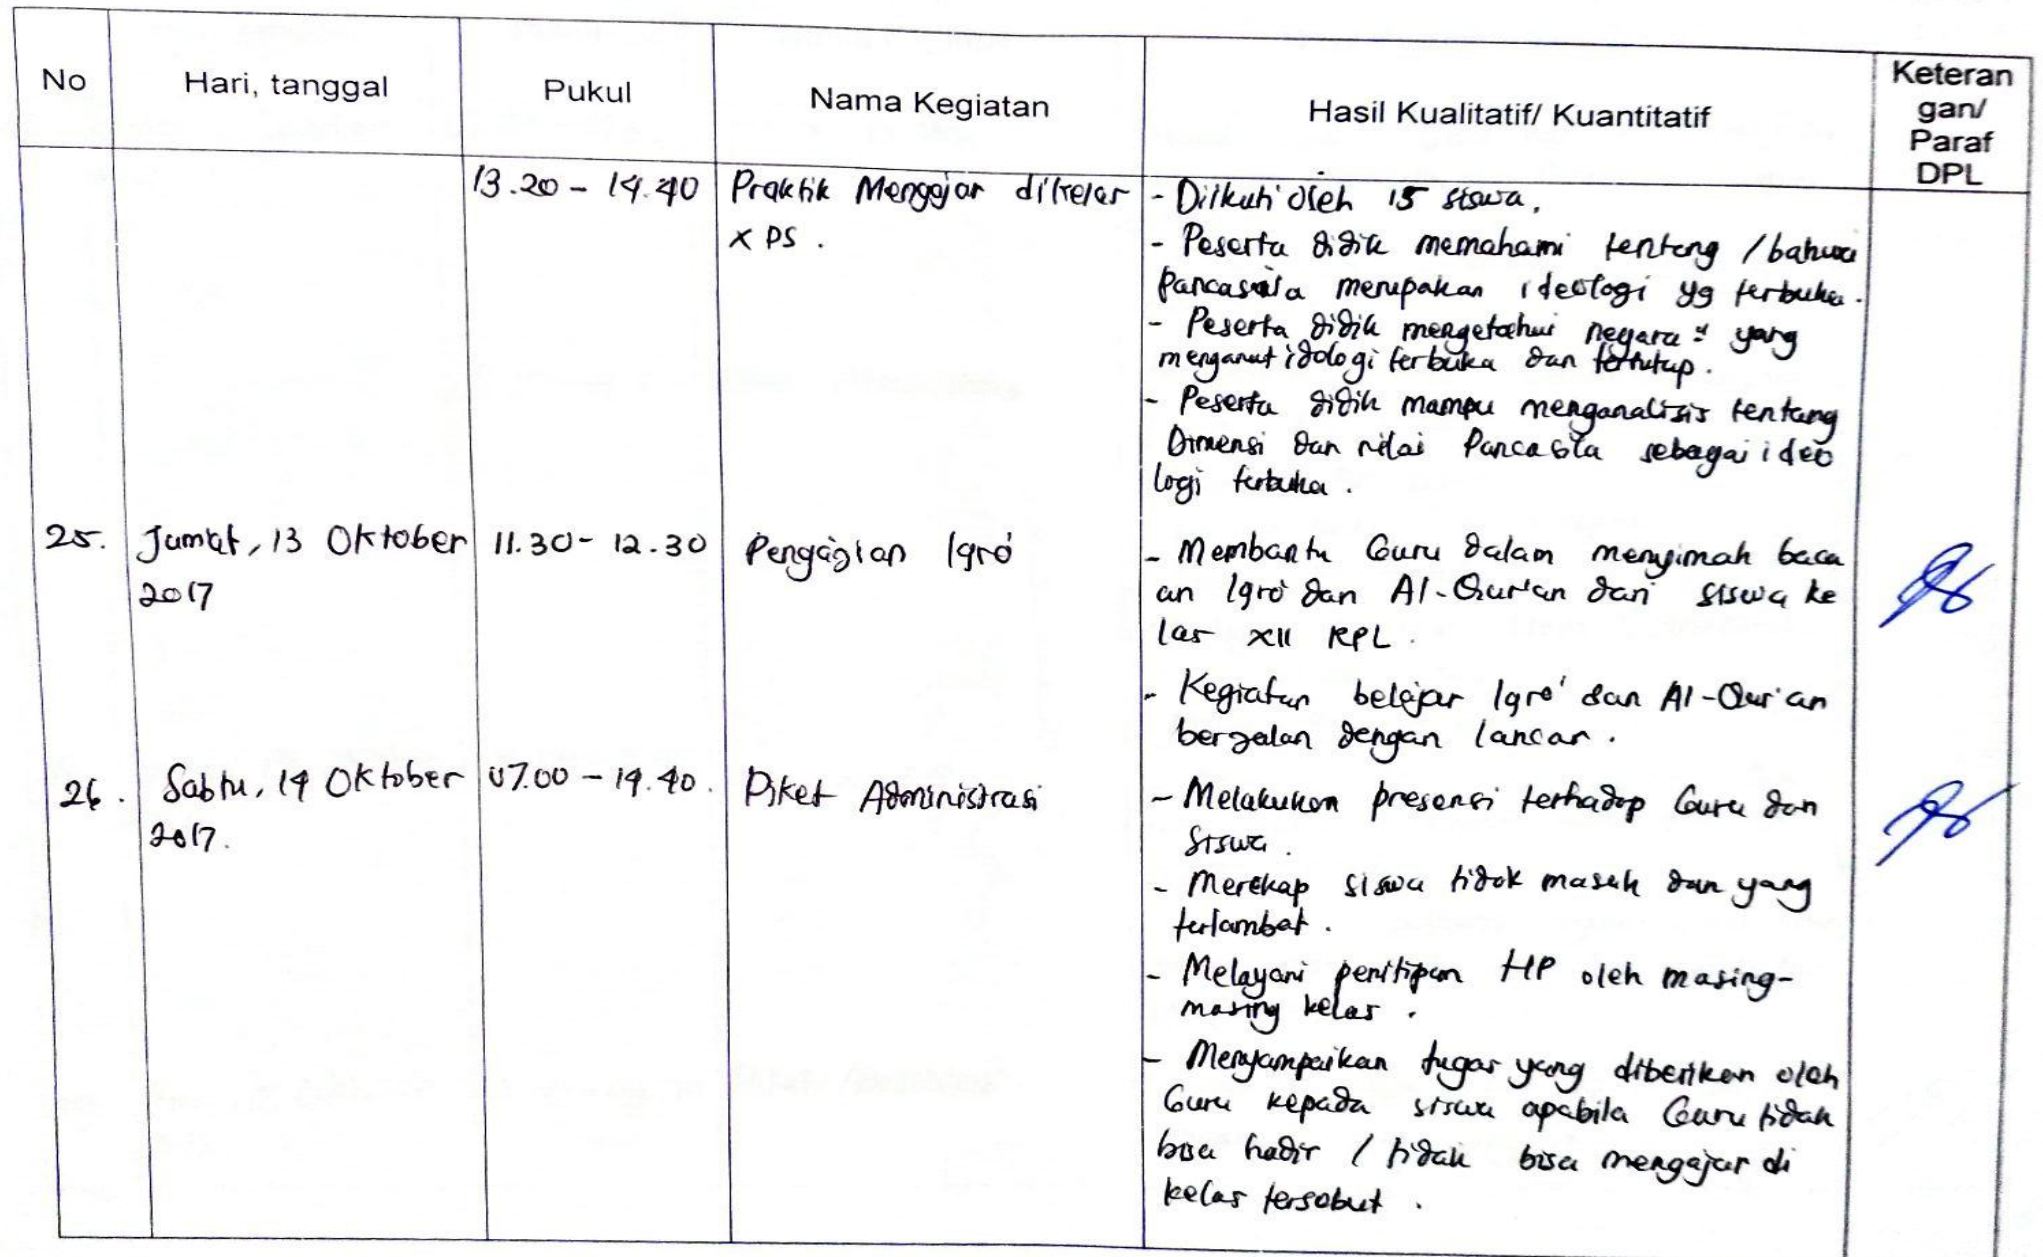 No
Hari, tanggal
Pukul
Nama Kegiatan
Hasil Kualitatif/ Kuantitatif
Keteran
gan/
Paraf
DPL
13.20 - 14.40
Praktik Mengajar dikelas
X PS .
- Diikuti oleh 15 siswa.
- Peserta didik memahami tentang / bahwa
Pancasila merupakan ideologi yg terbuka.
- Peserta didik mengetahui negara" yang
menganut idologi terbuka dan tertutup.
- Peserta didik mampu menganalisis tentang
Dimensi dan nilai Pancasila sebagai ideo
logi terbuka.
25.
Jumat, 13 Oktober
2017
11.30 - 12.30
Pengajian Iqro'
- Membantu Guru dalam menyimah baca
an Iqro' dan Al-Qur'an dari siswa ke
las XII RPL.
- Kegiatan belajar Iqro' dan Al-Qur'an
berjalan dengan lancar.
26.
Sabtu, 14 Oktober
2017.
07.00 - 14.40.
Piket Administrasi
- Melakukan presensi terhadap Guru dan
siswa.
- Merekap siswa tidak masuk dan yang
terlambat.
- Melayani penitipan HP oleh masing-
masing kelas.
- Menyampaikan tugas yang diberikan oleh
Guru kepada siswa apabila Guru tidak
bisa hadir / tidak bisa mengajar di
kelas tersebut.